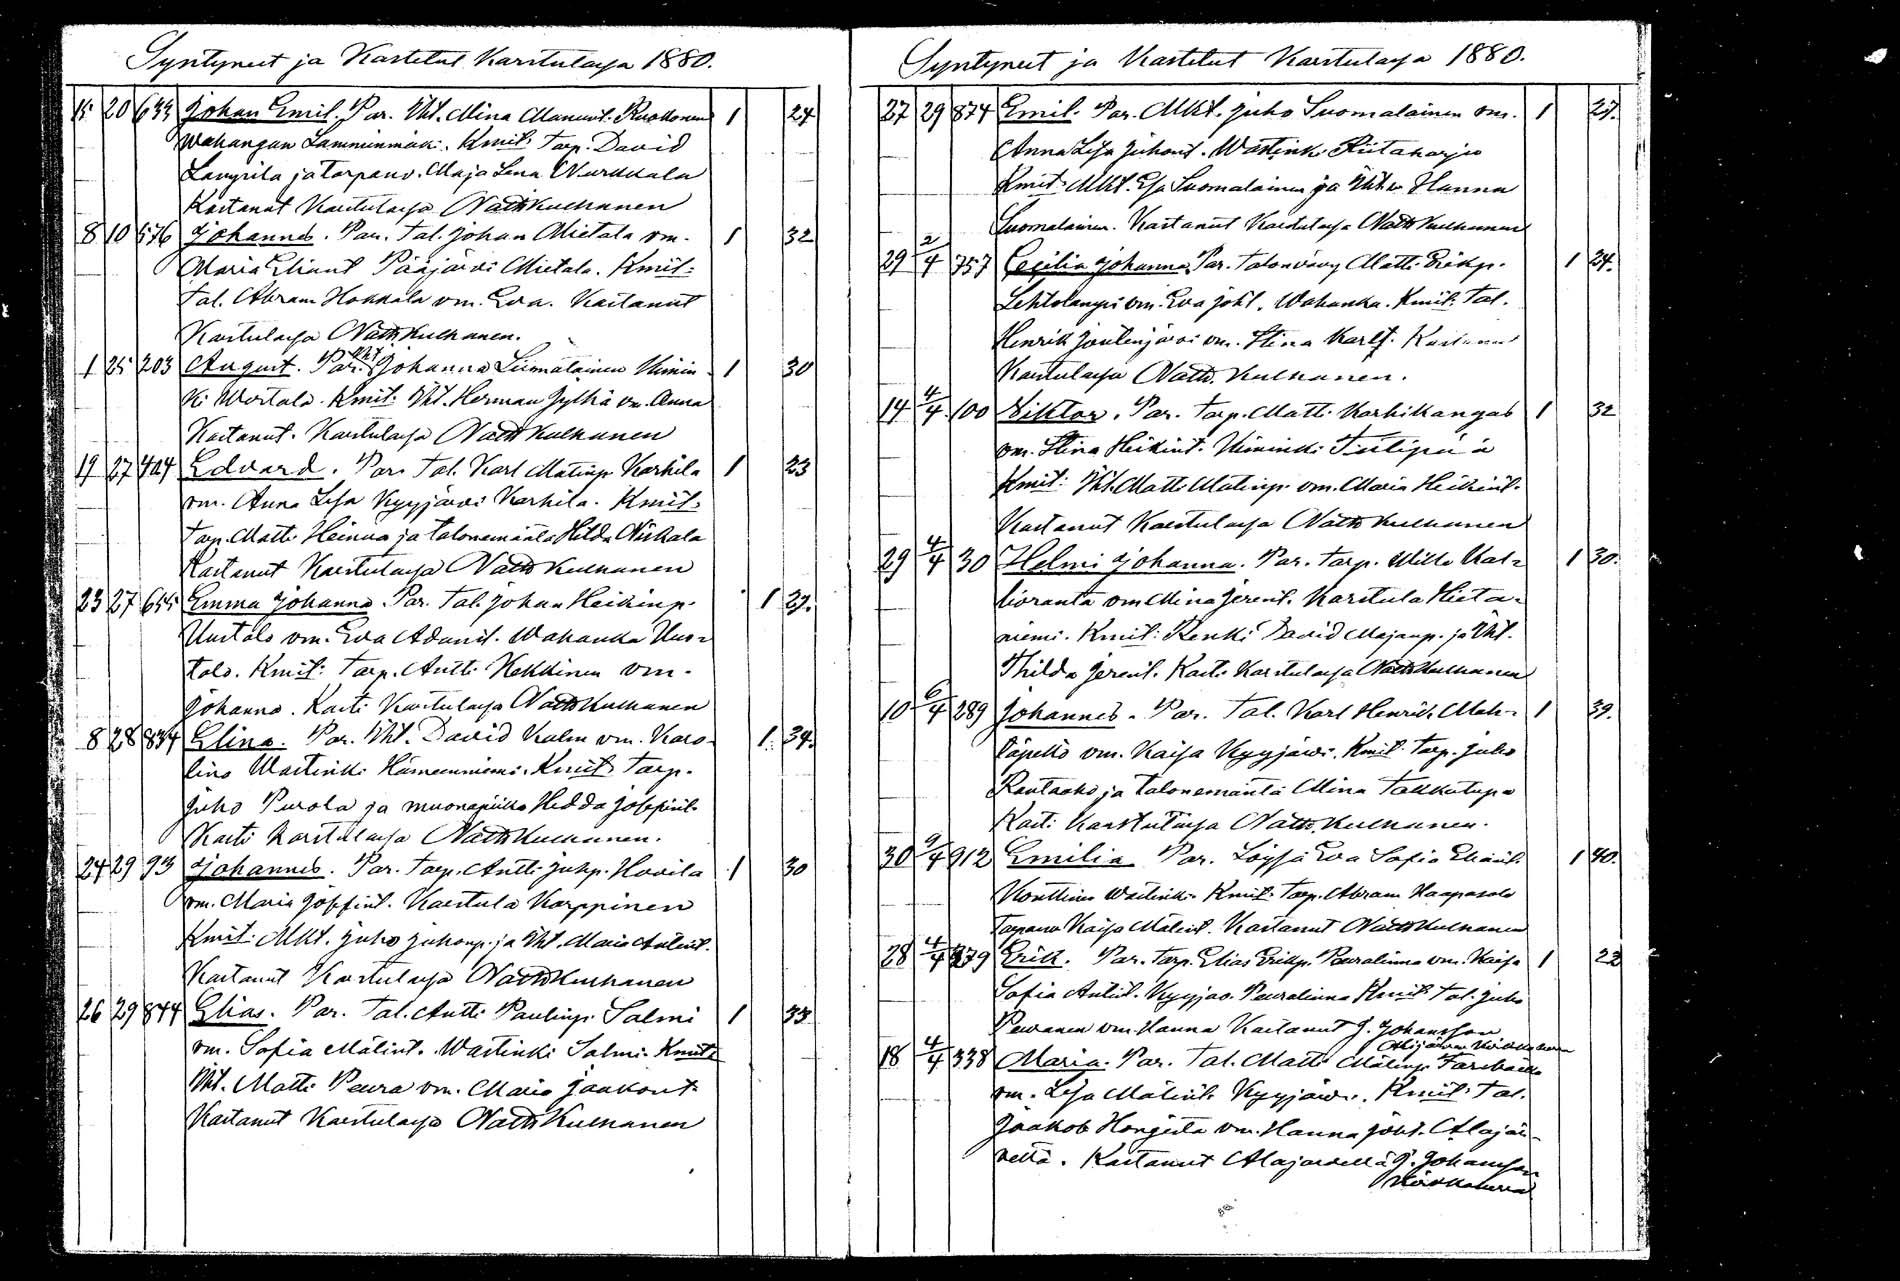 Syntyneet ja Kastetut Karstulassa 1880.
15 20 633 Johan Emil. Par. Iht. Mina Manuent. Ruokonen 1 24
Wahangan Lamminmäki. Kmit: Torp. David
Lampila ja torpanv. Maja Lena Nurkkala
Kastanut Karstulassa Nath Kulhanen
8 10 576 Johannes. Par. Tal. Johan Mietala vm. 1 32
Maria Eliant Pääjärvi Mietala. Kmit:
Tal. Abram Hokkala vm. Eva. Kastanut
Karstulassa Nath Kulhanen.
1 25 203 August. Par. Iht Johanna Liimatainen Kimin- 1 30
ki Wertala. Kmit: Iht. Herman Jylhä vm. Anna
Kastanut. Karstulassa Nath Kulhanen
19 27 404 Edvard. Par. Tal. Karl Matinp. Karhila 1 23
vm. Anna Lisa Kyyjärvi Karhila. Kmit:
Torp. Matti Heinua ja talonemäntä Hilda Niskala
Kastanut Karstulassa Nath Kulhanen
23 27 655 Emma Johanna. Par. Tal. Johan Heikinp. 1 27.
Uustalo vm. Eva Adamit. Wahanka Uus=
talo. Kmit: Torp. Antti Kekkinen vm.
Johanna. Kasti Karstulassa Nath Kulhanen
8 28 834 Elina. Par. Iht. David Kalm vm. Karo- 1 34.
lina Wastinki Hämeenniemi. Kmit: Torp.
Juho Purola ja muonapiika Hedda Josefint.
Kasti Karstulassa Nath Kulhanen.
24 29 93 Johannes. Par. Torp. Antti Juhp. Hovila 1 30
vm. Maria Josefint. Karstula Korppinen
Kmit: Mkt. Juho Juhonp. ja Iht. Maria Antint.
Kastanut Karstulassa Nath Kulhanen
26 29 844 Elias. Par. Tal. Antti Paulinp. Salmi 1 33
vm. Sofia Mätint. Wastinki Salmi. Kmit:
Iht. Matti Peura vm. Maria Jaakont.
Kastanut Karstulassa Nath Kulhanen
Syntyneet ja Kastetut Karstulassa 1880.
27 29 874 Emil. Par. Mkt. Juho Suomalainen vm. 1 27.
Anna Lisa Juhont. Wastinki Riitaharju
Kmit: Mkt. Esa Suomalainen ja Iht. v Hanna
Suomalainen. Kastanut Karstulassa Nath Kulhanen
29 2/4 757 Cecilia Johanna. Par. Talonvävy Matti Erikp. 1 24.
Lehtolampi vm. Eva Joht. Wahanka. Kmit: Tal.
Henrik Joutenjärvi vm. Stina Karlt. Kastanut
Karstulassa Nath. Kulhanen.
14 4/4 100 Viktor. Par. Torp. Matti Karhikangas 1 32
vm. Stina Heikint. Kiminki Tiilipää
Kmit: Iht. Matti Matinp. vm. Maria Heikint.
Kastanut Karstulassa Nath Kulhanen
29 4/4 30 Helmi Johanna. Par. Torp. Wille Kal= 1 30.
lioranta vm. Mina Jerent. Karstula Hieta=
niemi. Kmit: Renki David Majanp. ja Iht.
Thilda Jerent. Kasti Karstulassa Nath Kulhanen
10 6/4 289 Johannes. Par. Tal. Karl Henrik Mah= 1 39.
lapelto vm. Kaisa Kyyjärvi. Kmit: Torp. Juho
Rautaaho ja Talonemäntä Mina Takkutupa
Kasti Karstulassa Nath. Kulhanen.
30 9/4 912 Emilia Par. Loysä Eva Sofia Eliänt. 1 40.
Konttinen Wastinki. Kmit: Torp. Abram Haapasalo
Torpanv Kaisa Mätint. Kastanut Nath Kulhanen
28 4/4 379 Erik. Par. Torp. Elias Erikp. Peuralinna vm. Kaisa 1 22
Sofia Antint. Kyyjärv. Peuralinna Kmit: Tal. Juho
Pevanen vm. Hanna Kastanut J. Johansson
18 4/4 338 Maria. Par. Tal. Matti Mätinp.
vm. Lisa Mätint. Kyyjärvi. Kmit: Tal.
Jaakob Hongista vm. Hanna Joht. Alajär-
veltä. Kastanut Alajärvellä J. Johansson
Kirkkoherra